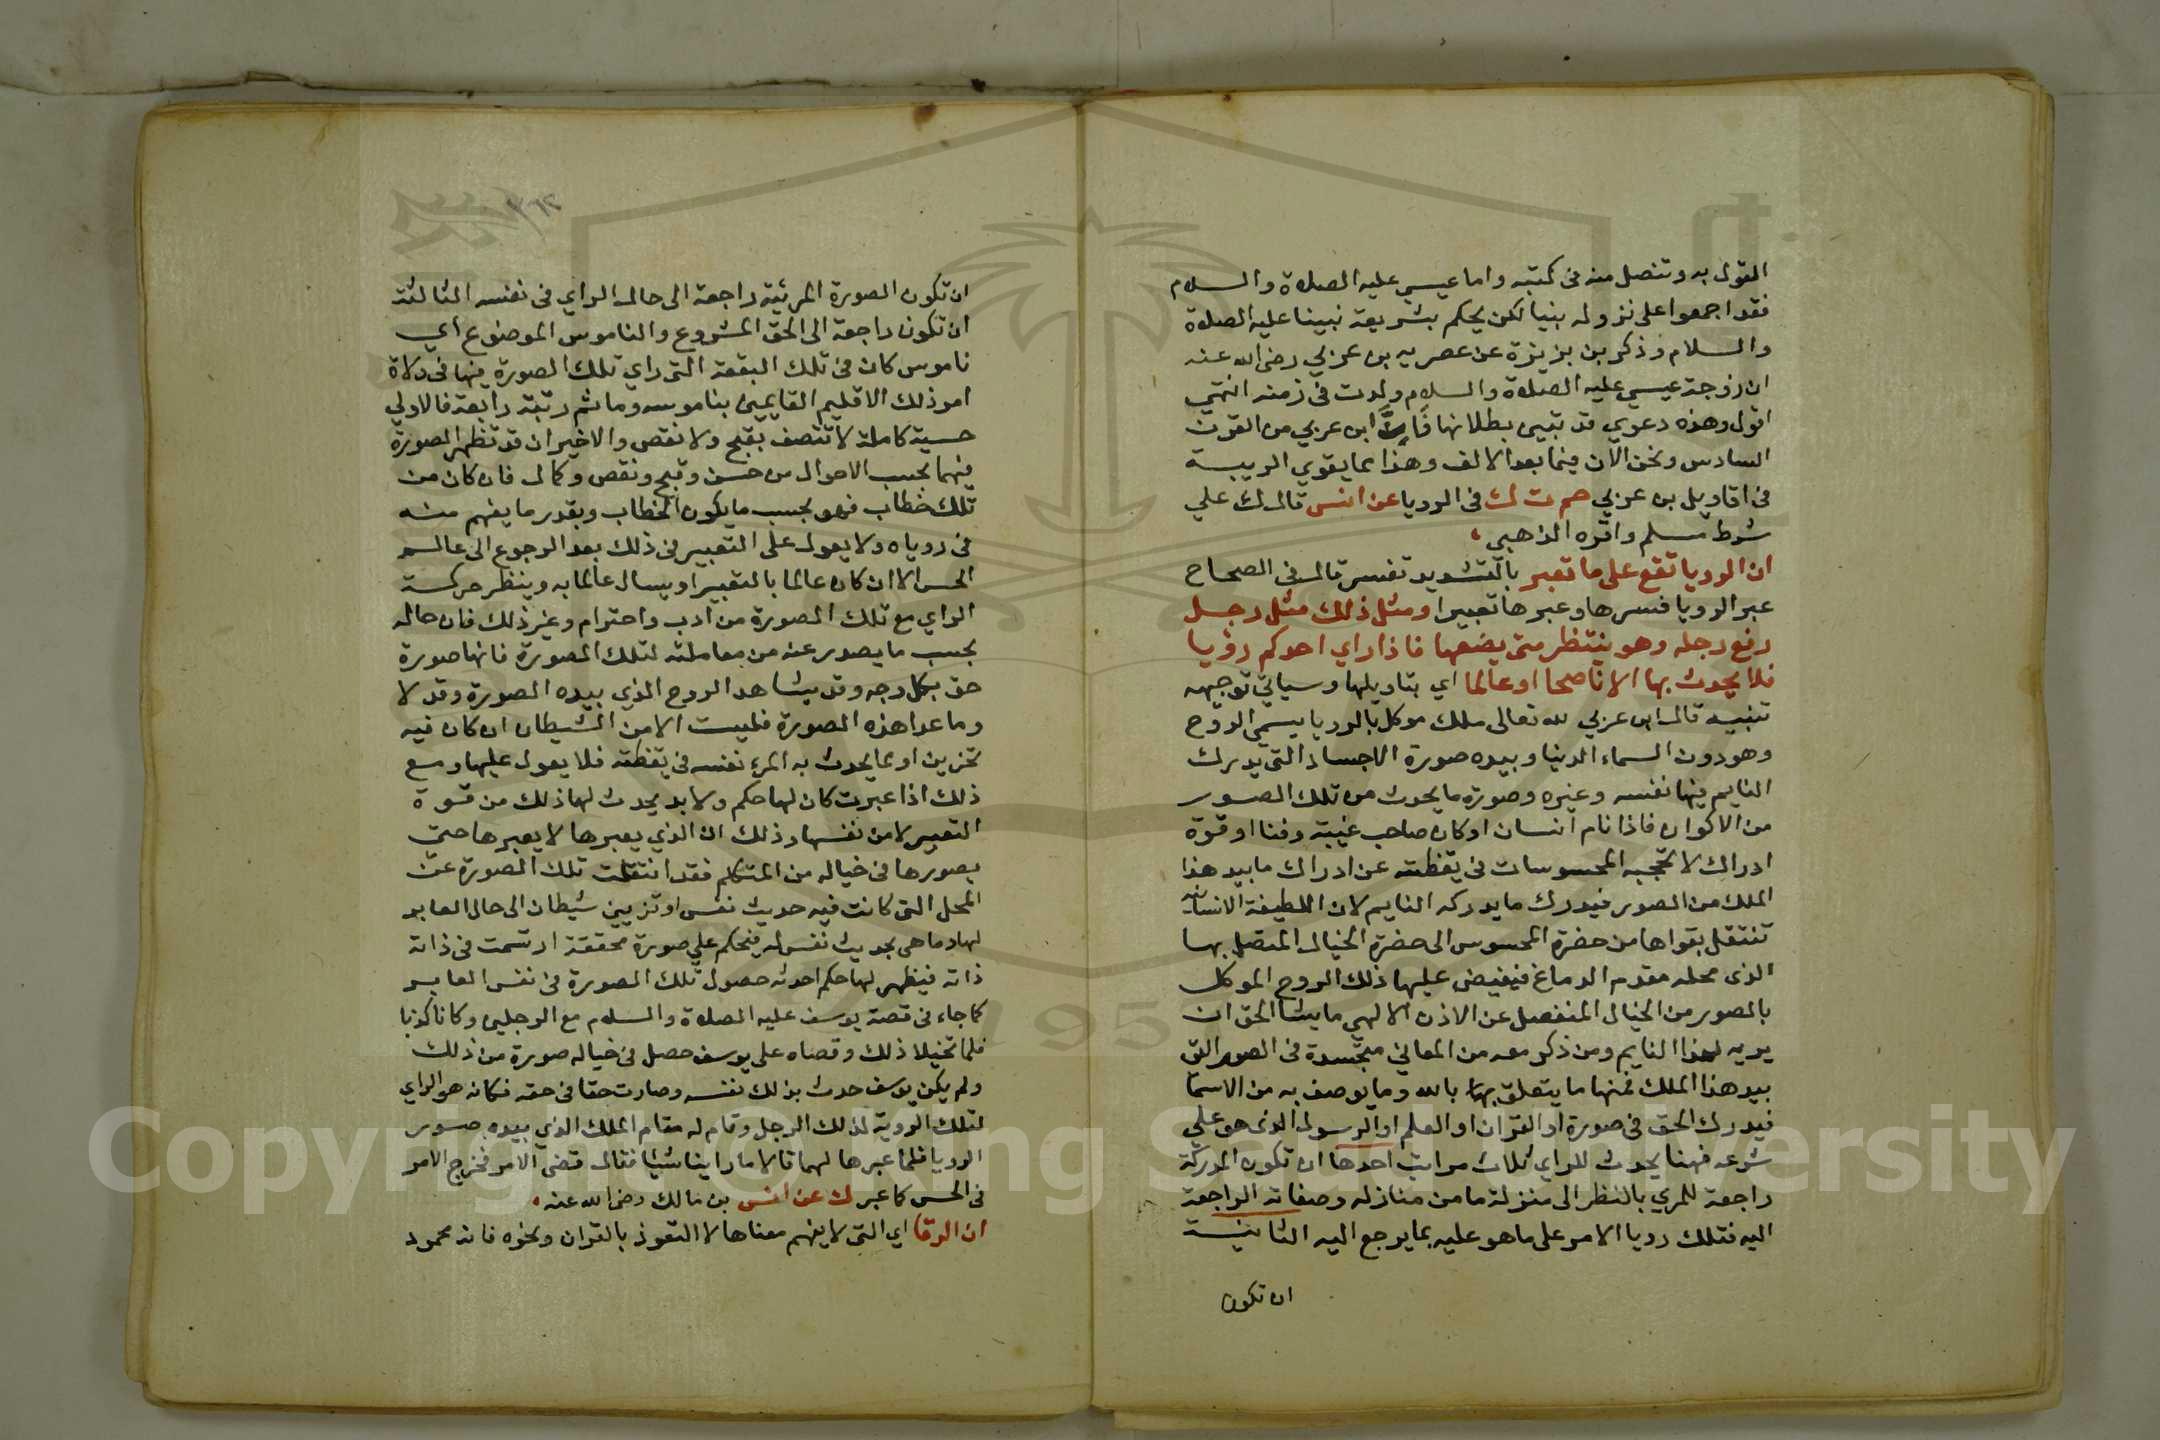 القول به وتنصل منه في كتبه واما عيسي عليه الصلاة والسلام
فقد اجمعوا على نزوله بنيا لكن يحكم بشريعة نبينا عليه الصلاة
والسلام وذكر بن بزيزة عن عصريه بن عربي رضي الله عنه
ان زوجة عيسي عليه الصلاة والسلام ولدت في زمنه انتهي
اقول وهذه دعوي قد تبين بطلانها فان ابن عربي من القرن
السادس ونحن الآن فيما بعد الالف وهذا مما يقوي الريبة
في اقاويل بن عربي حم ت ك في الرويا عن انس قال ك علي
شرط مسلم واقره الذهبي
ان الرويا تقع على ما تعبر بالتشديد تفسر قال في الصحاح
عبر الرويا فسرها وعبرها تعبيرا ومثل ذلك مثل رجل
رفع رجله وهو ينتظر متى يضعها فاذا راي احدكم رؤيا
فلا يحدث بها الا ناصحا او عالما اي بتاويلها وسياتي توجيهه
تنبيه قال ابن عربي لله تعالى ملك موكل بالرويا يسمي الروح
وهو دون السماء الدنيا وبيده صورة الاجساد التي يدرك
النايم فيها نفسه وغيره وصورة ما يحدث من تلك الصور
من الاكوان فاذا نام انسان او كان صاحب غيبة وفنا او قوة
ادراك لا تحجبه المحسوسات في يقظته عن ادراك ما بيد هذا
الملك من الصور فيدرك ما يدركه النايم لان اللطيفة الانسانية
تنتقل بقواها من حضرة المحسوس الى حضرة الخيال المتصل بها
الذي محله مقدم الدماغ فيفيض عليها ذلك الروح الموكل
بالصور من الخيال المنفصل عن الاذن الالهي ما يشا الحق ان
يريه لهذا النايم ومن ذكر معه من المعاني متجسدة في الصور التي
بيد هذا الملك فمنها ما يتعلق بها بالله وما يوصف به من الاسما
فيدرك الحق في صورة او القران او العلم او الرسول الذي هو على
شرعه فهنا يحدث للراي ثلاث مراتب احدها ان تكون المدركة
راجعة للمري بالنظر الى منزلة ما من منازله وصفاته الراجعة
اليه فتلك رويا الامر على ما هو عليه بما يرجع اليه الثانية
ان تكون
٣٦٢
ان تكون الصورة المرئية راجعة الى حال الراي في نفسه الثالثة
ان تكون راجعة الى الحق المشروع والناموس الموضوع اي
ناموس كان في تلك البقعة التي راي تلك الصورة فيها في ولاة
امر ذلك الاقليم القايمين بناموسه وما ثم رتبة رابعة فالاولي
حسية كاملة لا تتصف بقبح ولا نقص والاخيران قد تظهر الصورة
فيهما بحسب الاحوال من حسن وقبح ونقص وكمال فان كان من
تلك خطاب فهو بحسب ما يكون الخطاب وبقدر ما يفهم منه
في روياه ولا يعول على التعبير في ذلك بعد الرجوع الى عالم
الحس الا ان كان عالما بالتعبير او يسال عالما به وينظر حركة
الراي مع تلك الصورة من ادب واحترام وغير ذلك فان حاله
بحسب ما يصدر عنه من معاملته لتلك الصورة فانها صورة
حق بكل وجه وقد يشاهد الروح الذي بيده الصورة وقد لا
وما عدا هذه الصورة فليست الا من الشيطان ان كان فيه
تحزين او مما يحدث به المرء نفسه في يقظته فلا يعول عليها ومع
ذلك اذا عبرت كان لها حكم ولا بد يحدث لها ذلك من قوة
التعبير لا من نفسها وذلك ان الذي يعبرها لا يعبرها حتى
يصورها في خياله من المتكلم فقد انتقلت تلك الصورة عن
المحل التي كانت فيه حديث نفس او تزيين شيطان الى حال العابر
لها وما هي بحديث نفس له فيحكم علي صورة محققة ارتسمت في ذاته
ذاته فيظهر لها حكم احدثه حصول تلك الصورة في نفس العابر
كما جاء في قصة يوسف عليه الصلاة والسلام مع الرجلين وكانا كذبا
فلما تخيلا ذلك وقصاه على يوسف حصل في خياله صورة من ذلك
ولم يكن يوسف حدث بذلك نفسه وصارت حقا في حقه فكانه هو الراي
لتلك الروية لذلك الرجل وقام له مقام الملك الذي بيده صور
الرويا فلما عبرها لهما قالا ما راينا شيا فقال قضى الامر فخرج الامر
في الحس كما عبر ك عن انس بن مالك رضي الله عنه
ان الرقا اي التي لا يفهم معناها لا التعوذ بالقران ونحوه فانه محمود
Copyright © King Saud University